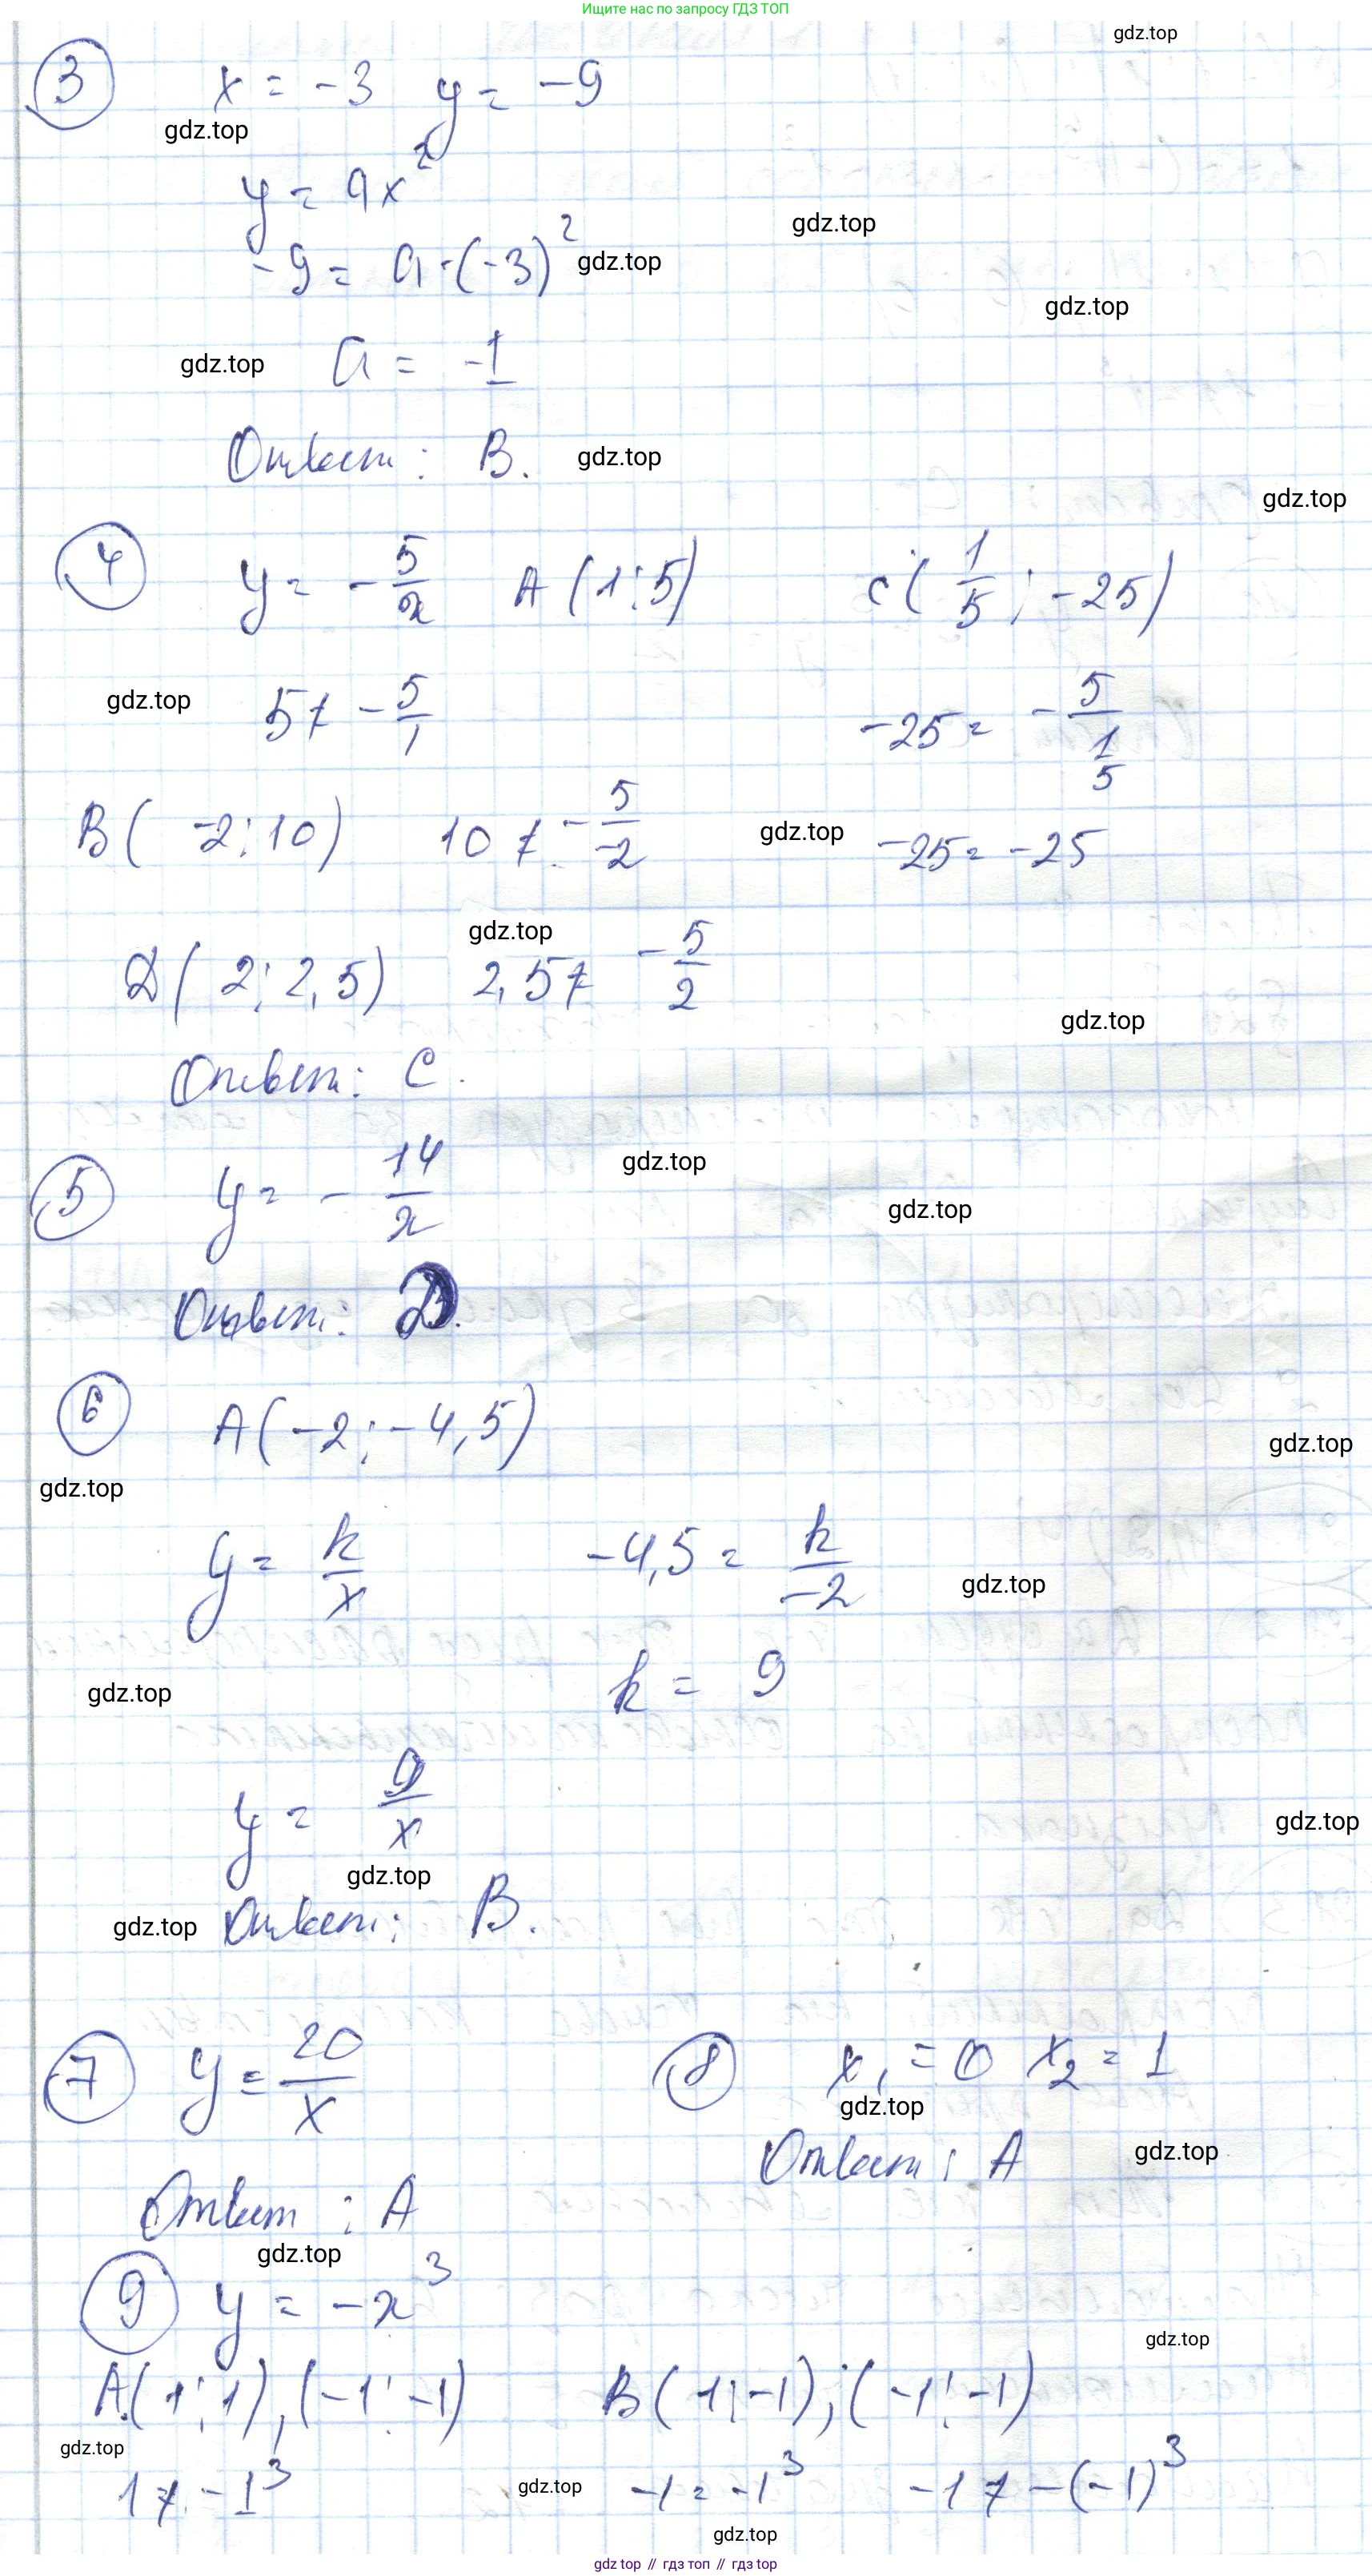 Ищите нас по запросу ГДЗ ТОП
gdz.top
3 x = -3 y = -9
gdz.top
y = ax²
gdz.top
-9 = a·(-3)² gdz.top
gdz.top
gdz.top a = -1
Ответ: B. gdz.top
gdz.top
4 y = -5/x A(1;5) C(1/5; -25)
gdz.top 5 ≠ -5/1 -25 = -5/(1/5)
B(-2;10) 10 ≠ -5/-2 gdz.top -25 = -25
gdz.top
D(2;2,5) 2,5 ≠ -5/2
gdz.top
Ответ: C.
5 y = -14/x gdz.top
gdz.top
Ответ: D.
6 A(-2;-4,5)
gdz.top
gdz.top
y = k/x -4,5 = k/-2 gdz.top
gdz.top k = 9
y = 9/x gdz.top
gdz.top
gdz.top Ответ: B.
7 y = 20/x 8 x₁ = 0 x₂ = 1
gdz.top
Ответ: A gdz.top
Ответ: A
gdz.top
9 y = -x³
gdz.top
A(1;1), (-1;-1) B(1;-1); (-1;-1)
gdz.top
1 ≠ -1³ gdz.top -1 = -1³ -1 ≠ -(-1)³
gdz.top
gdz top // гдз топ // gdz top